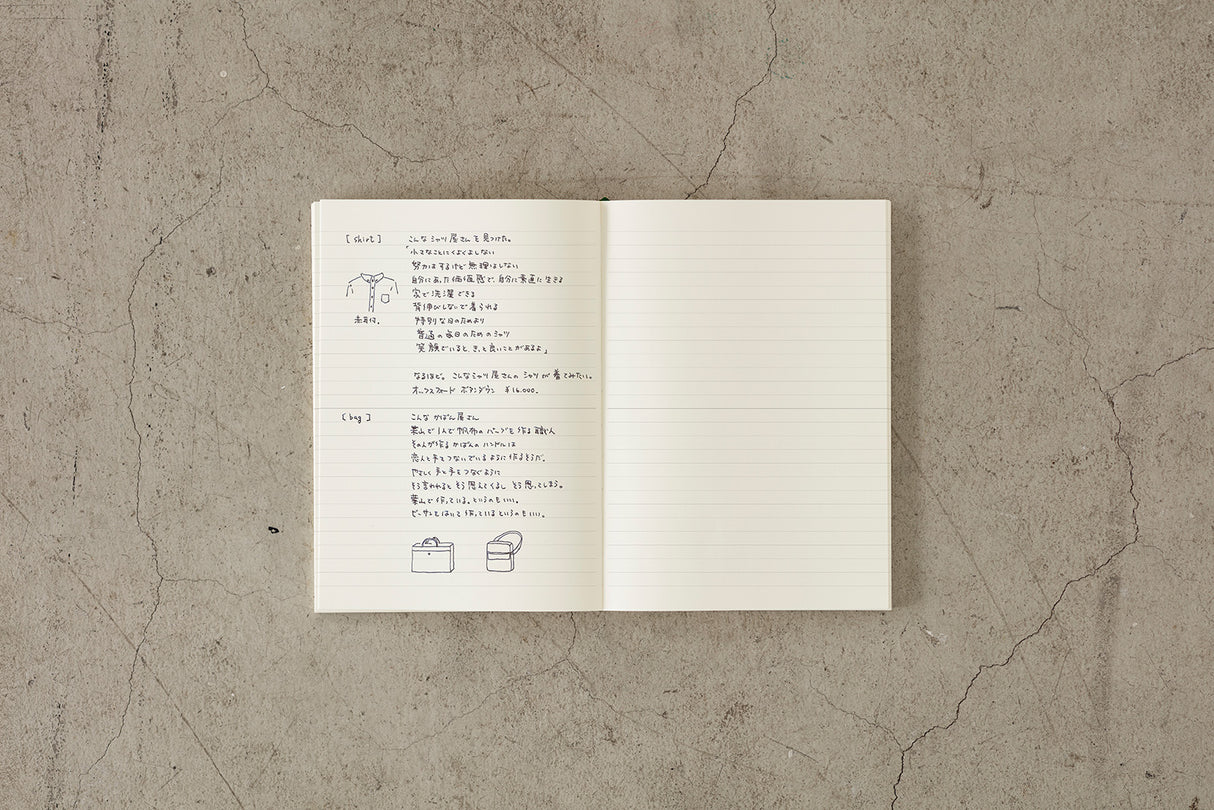 [shirt]
こんなシャツ屋さんを見つけた。
「小さなことにくよくよしない
努力はするけど無理はしない
自分にあった価値感で、自分に素直に生きる
家で洗濯できる
背伸びしないで着られる
特別な日のためより
普通の毎日のためのシャツ
笑顔でいると、きっと良いことがあるよ」
なるほど。こんなシャツ屋さんのシャツが着てみたい。
オックスフォード ボタンダウン ¥16.000.
[bag]
こんなかばん屋さん
葉山で1人で帆布のバッグを作る職人
その人が作るかばんのハンドルは
恋人と手をつないでいるように作るそうだ。
やさしく手と手をつなぐように
そう言われるとそう思えてくるし そう思ってしまう。
葉山で作っている。というのもいい。
ビーサンをはいて作っているというのもいい。